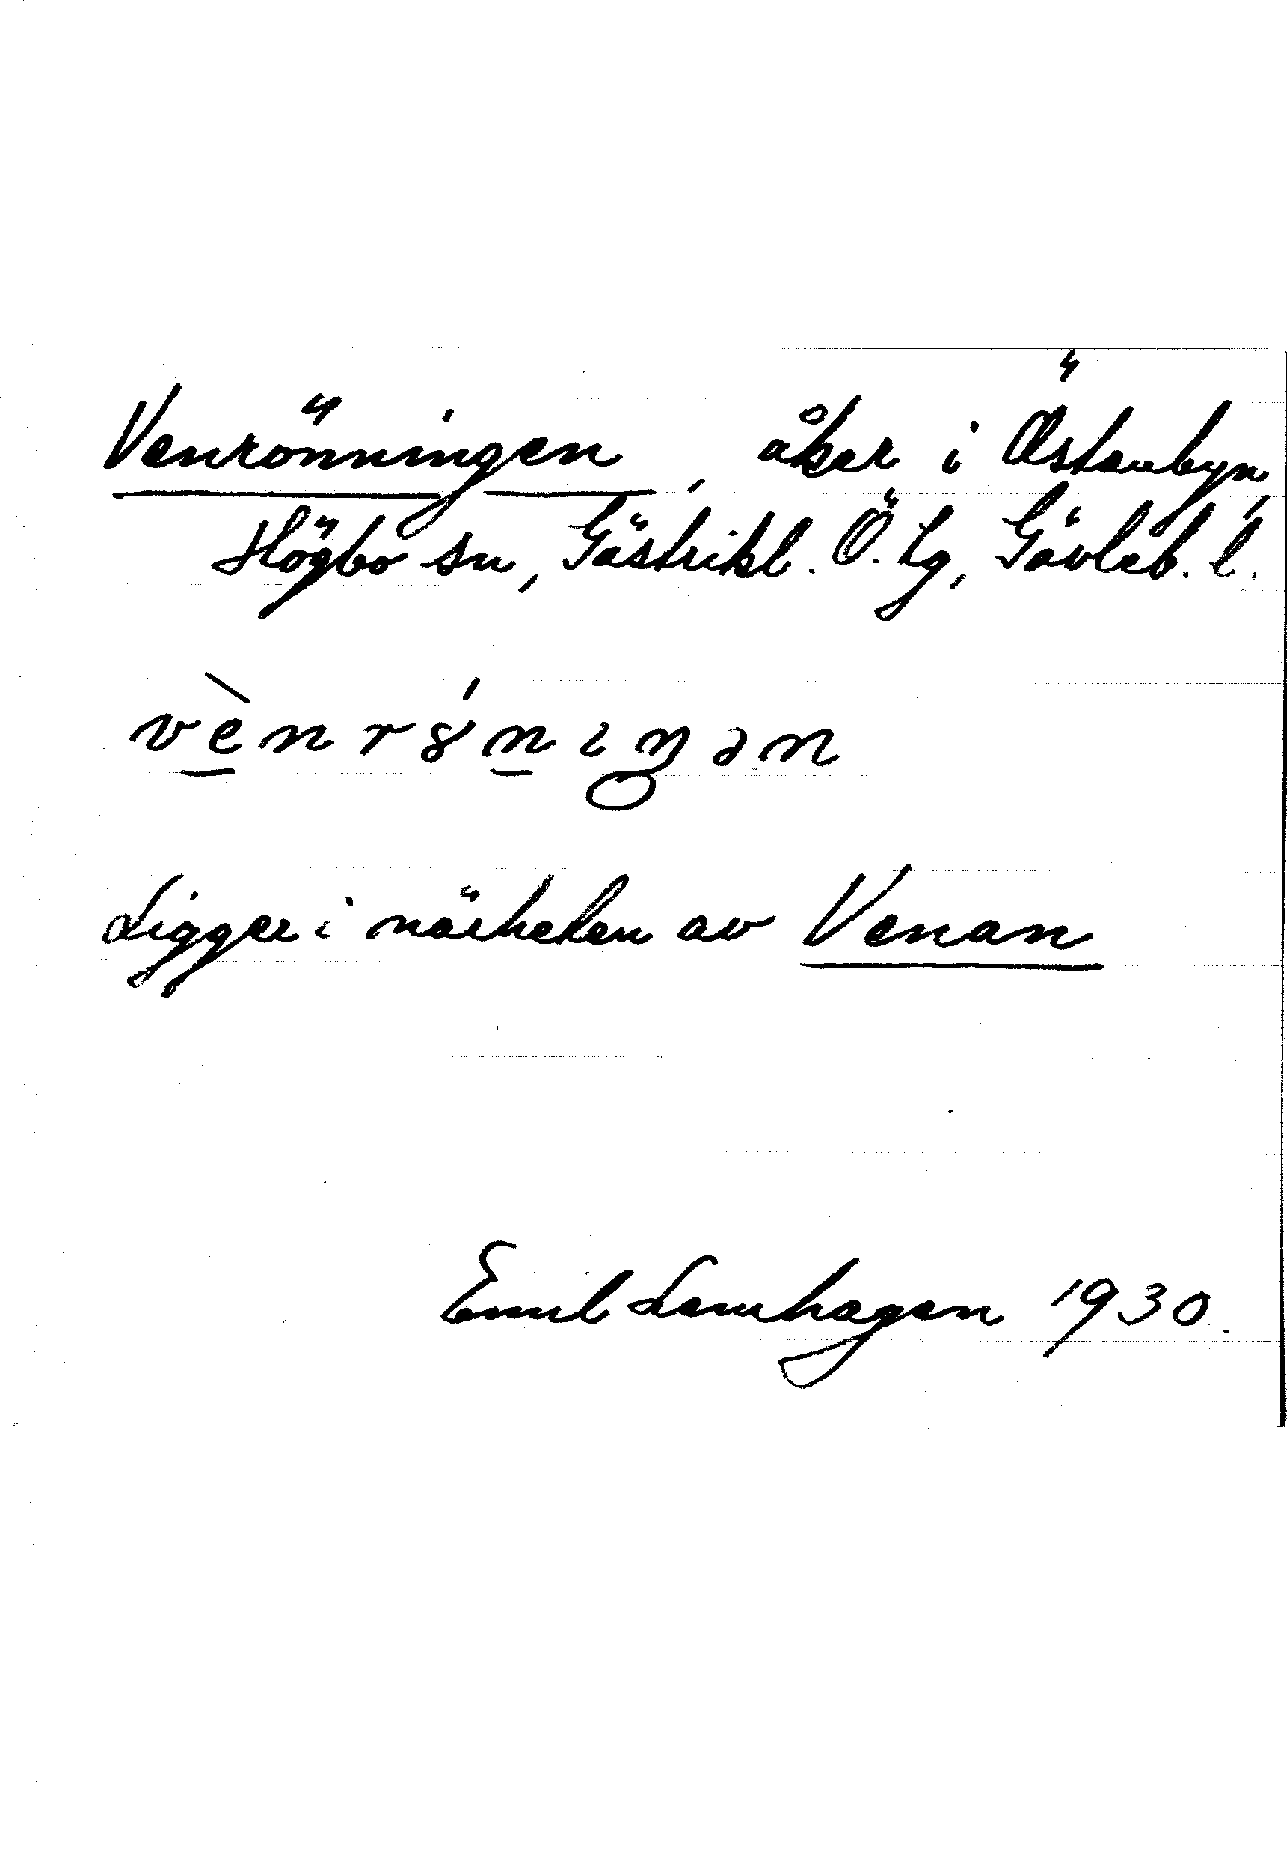 Venrönningen, åker i Östanbyn,
Högbo sn, Gästrikl. Ö. tg, Gävleb. l.
vènrǿniŋən
Ligger i närheten av Venan
Emil Lamhagen 1930.